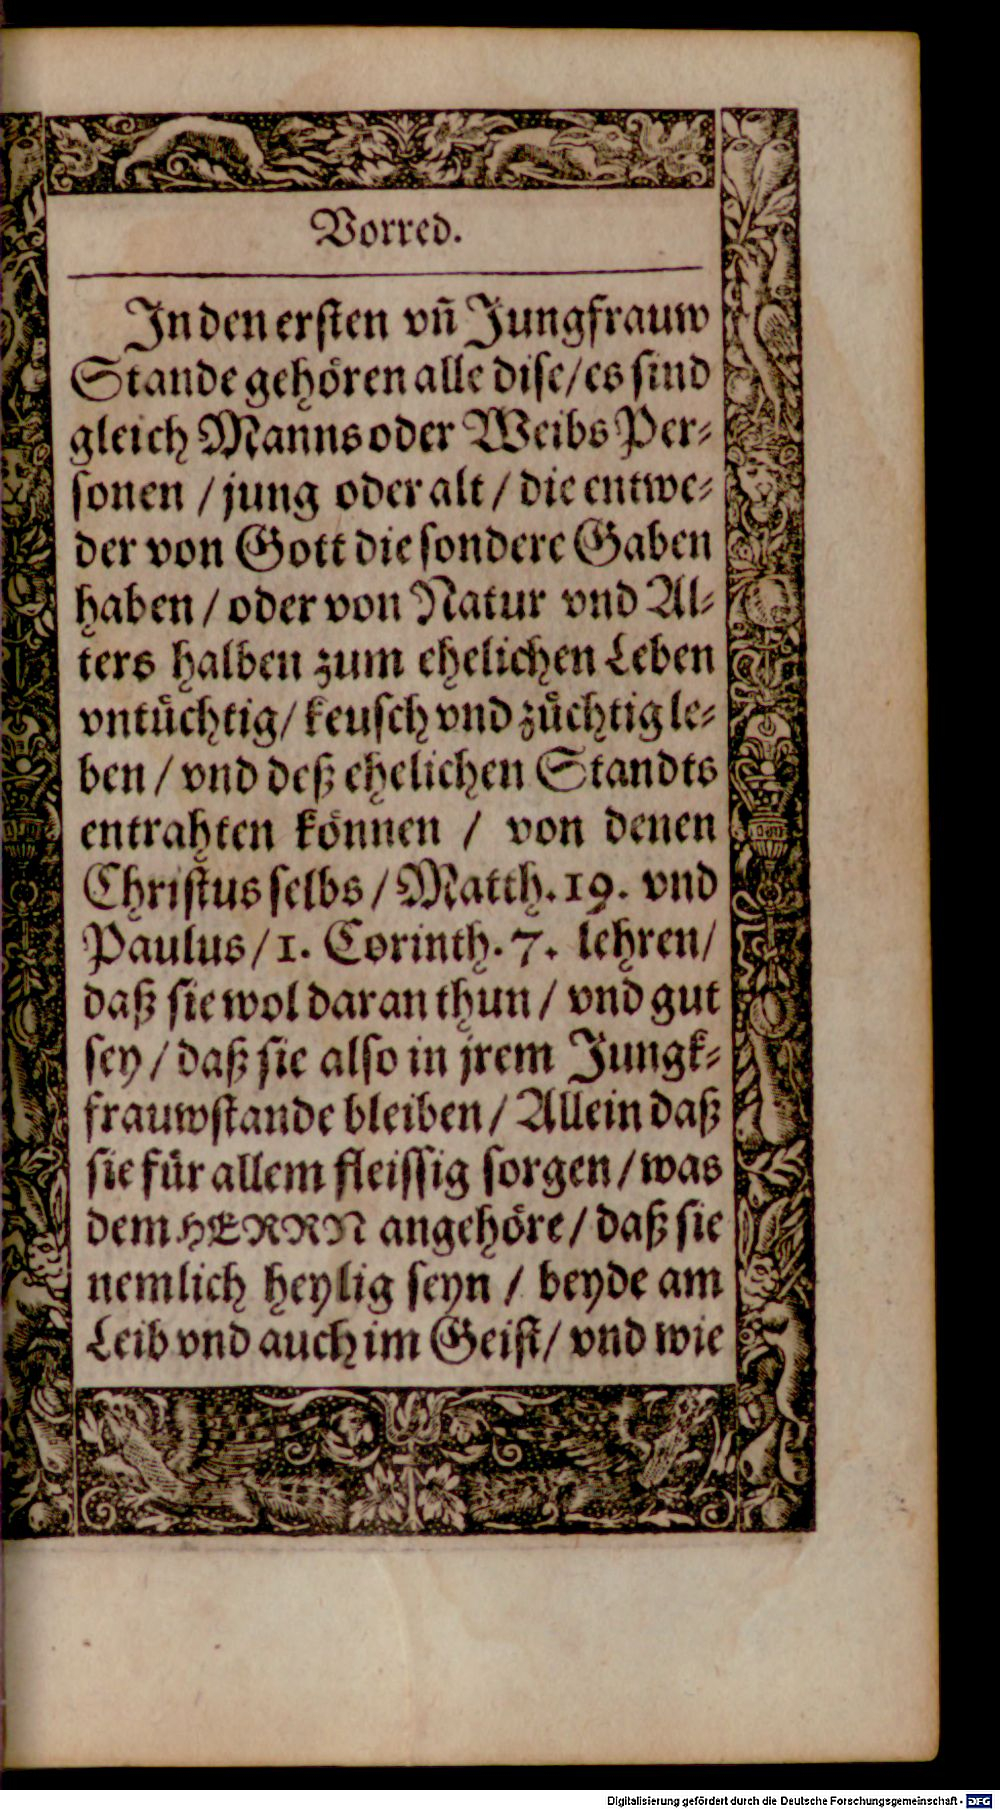 Vorred.
In den ersten vñ Jungfrauw
Stande gehören alle dise/es sind
gleich Manns oder Weibs Per⸗
sonen / jung oder alt / die entwe⸗
der von Gott die sondere Gaben
haben / oder von Natur vnd Al⸗
ters halben zum ehelichen Leben
vntüchtig/ keusch vnd züchtig le⸗
ben / vnd deß ehelichen Standts
entrahten können / von denen
Christus selbs / Matth. 19. vnd
Paulus/1. Corinth. 7. lehren/
daß sie wol daran thun / vnd gut
sey / daß sie also in jrem Jungk⸗
frauwstande bleiben / Allein daß
sie für allem fleissig sorgen / was
dem HERRN angehöre / daß sie
nemlich heylig seyn / beyde am
Leib vnd auch im Geist/ vnd wie
Digitalisierung gefördert durch die Deutsche Forschungsgemeinschaft - DFG